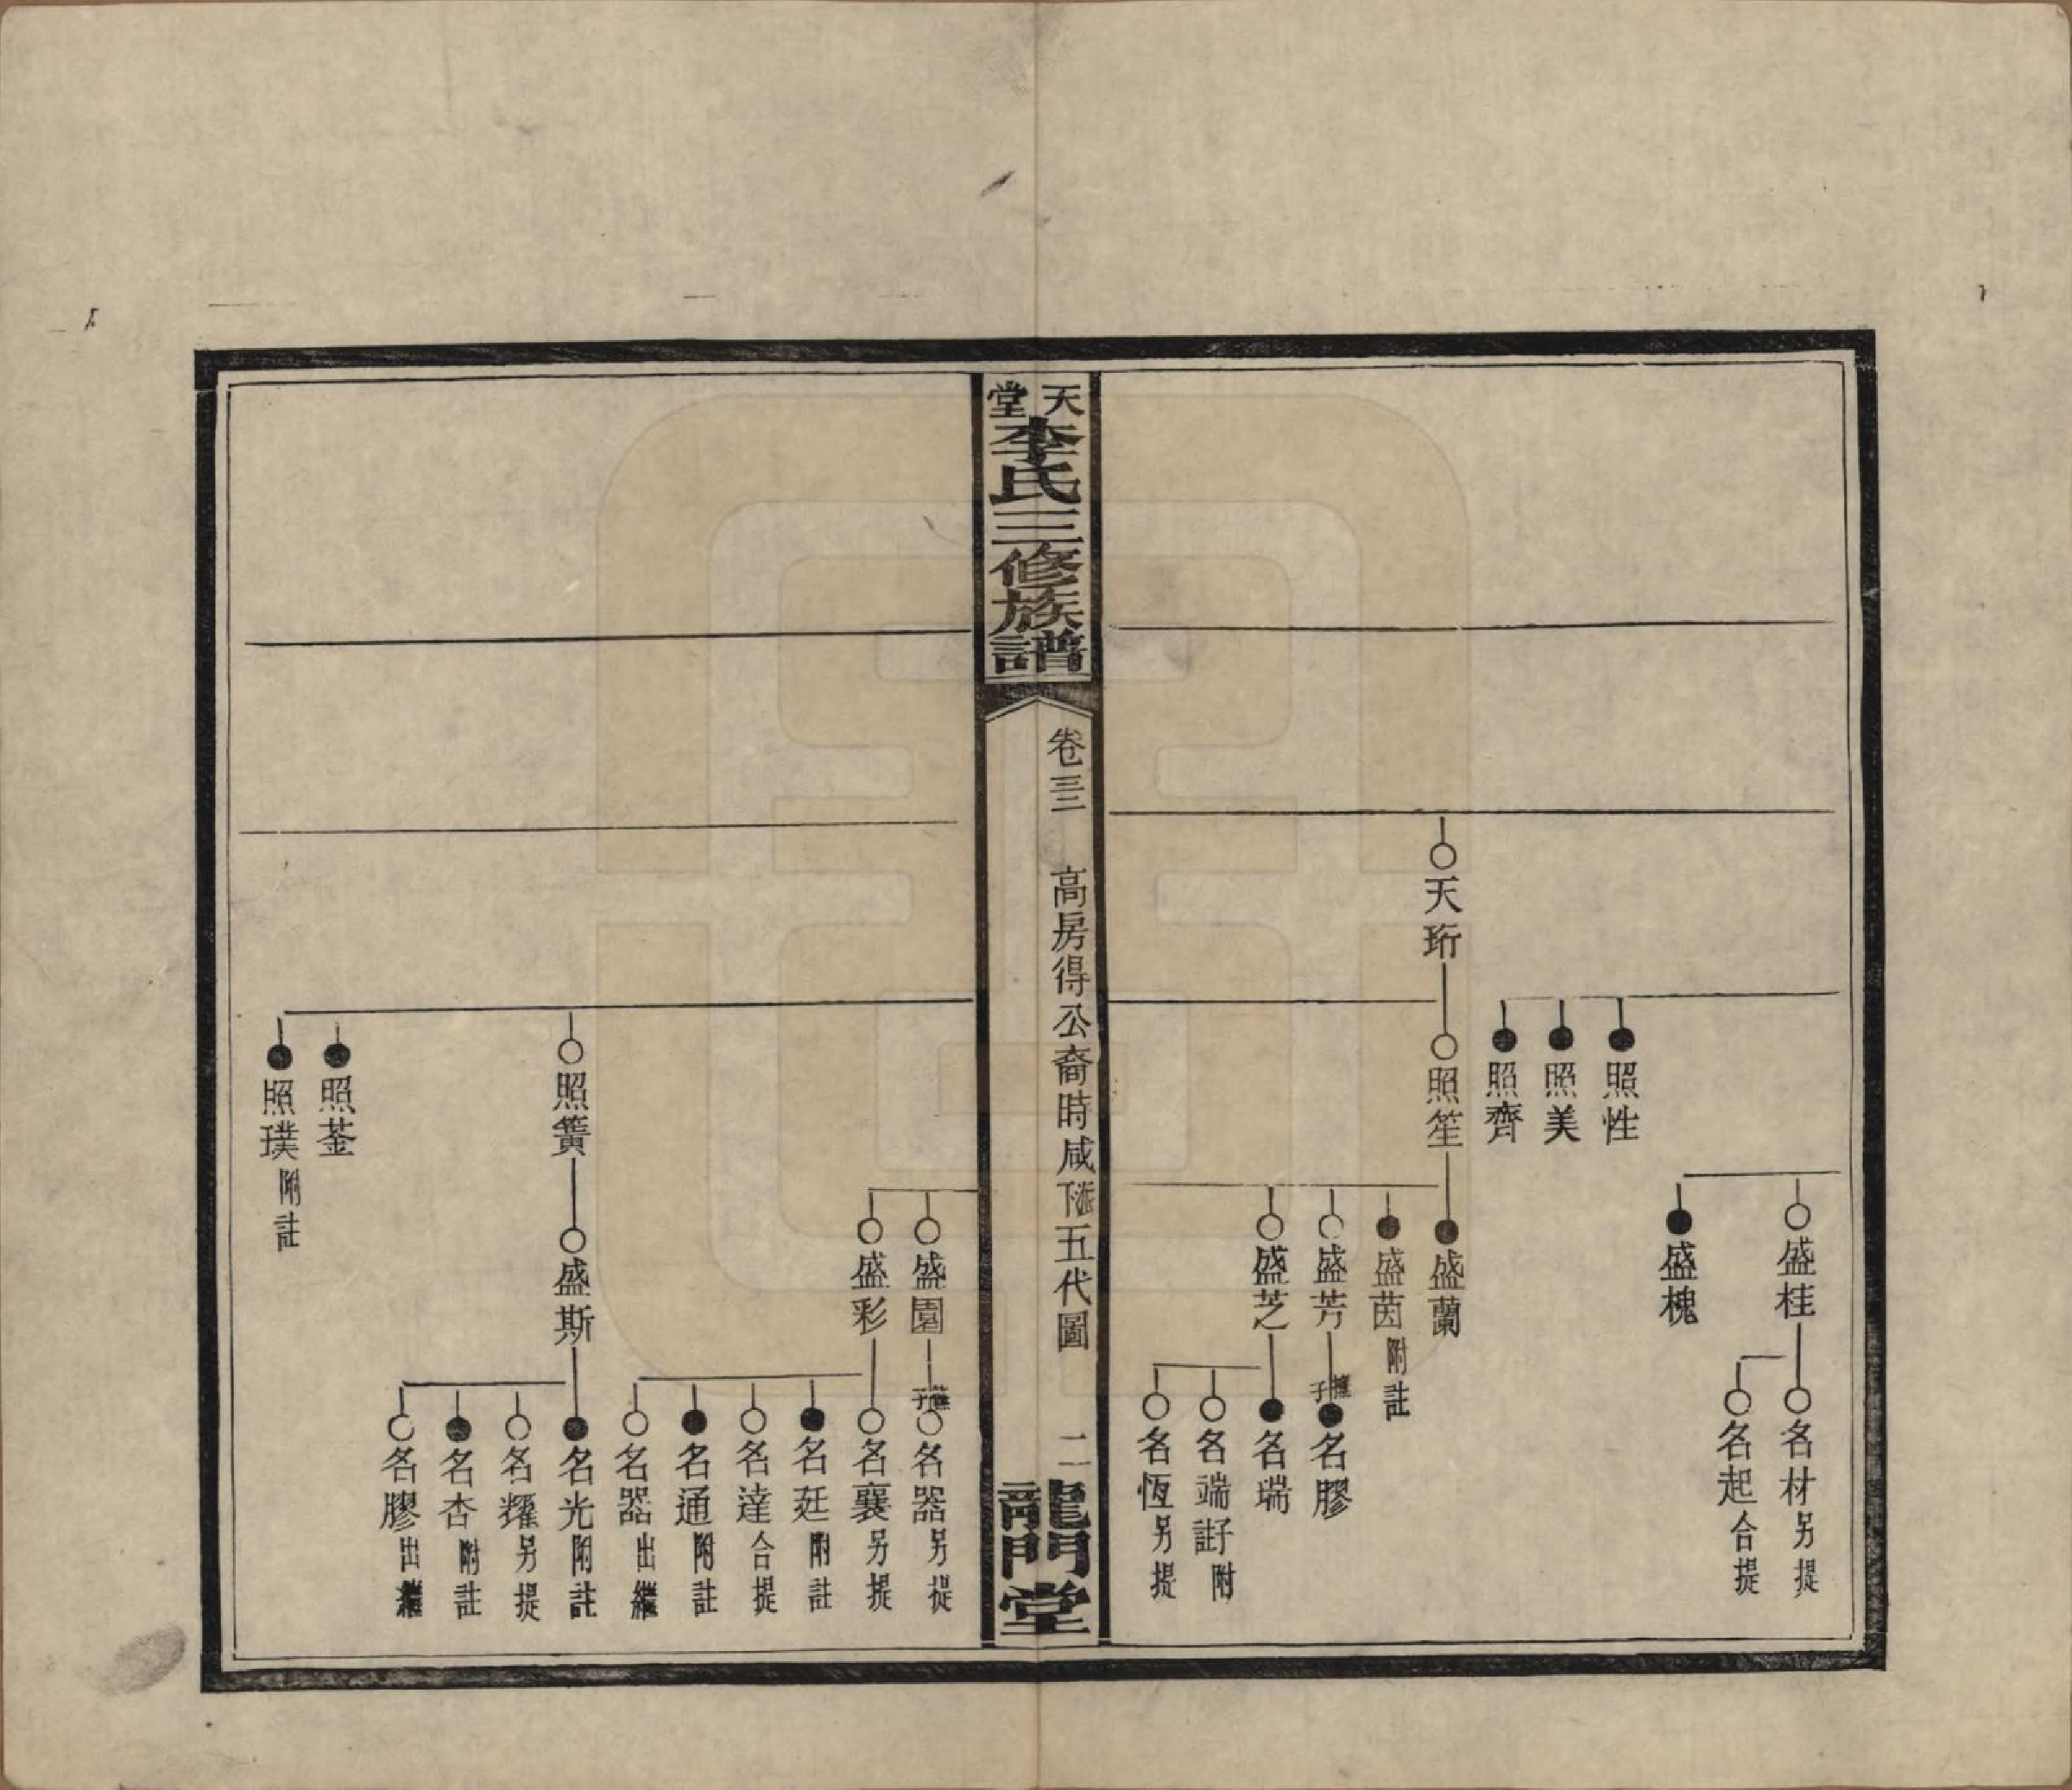 照性
照美
照齊
盛桂
盛槐
名材另提
名起合提
天珩
照笙
盛蘭
盛茵附註
盛芳
盛芝
名膠
名瑞
名端子附註
名恆另提
天堂李氏三修族譜
卷三二
高房得公裔時咸下派五代圖
二
龍門堂
盛園
盛彩
名器另提
名襄另提
名廷附註
名達合提
名通附註
名器出繼
照簧
盛斯
名光附註
名耀另提
名杏附註
名膠出繼
照荃
照璞附註